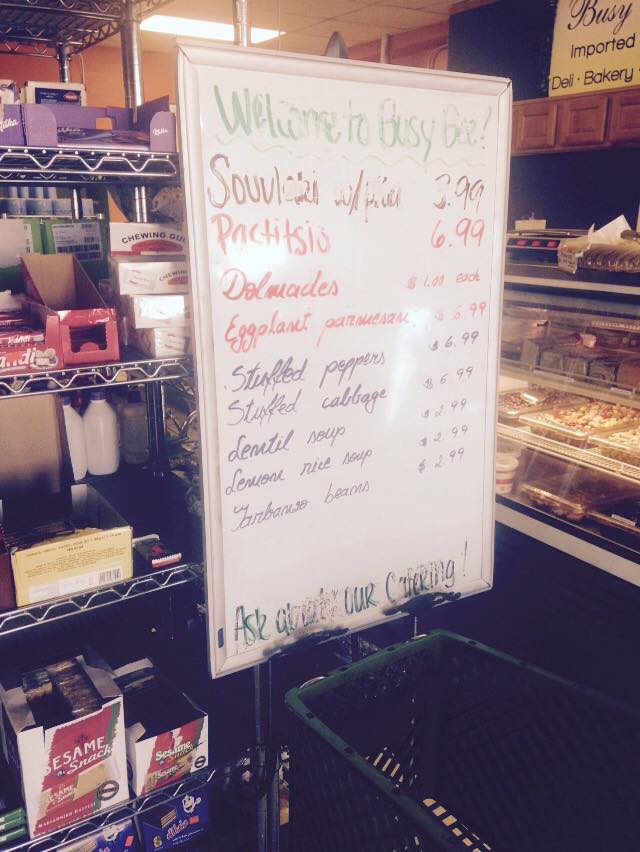 Busy
Imported
Deli · Bakery
Welcome to Busy Bee!
Souvlaki w/pita 3.99
Pactitsio 6.99
Dolmades $1.00 each
Eggplant parmesan $6.99
Stuffed peppers $6.99
Stuffed cabbage $6.99
Lentil soup $2.99
Lemon rice soup $2.99
Farbanso beans $2.99
Ask about our Catering!
Milka
CHEWING GUM
CHEWING
SESAME
Snack
SESAME
Sesame
Snack